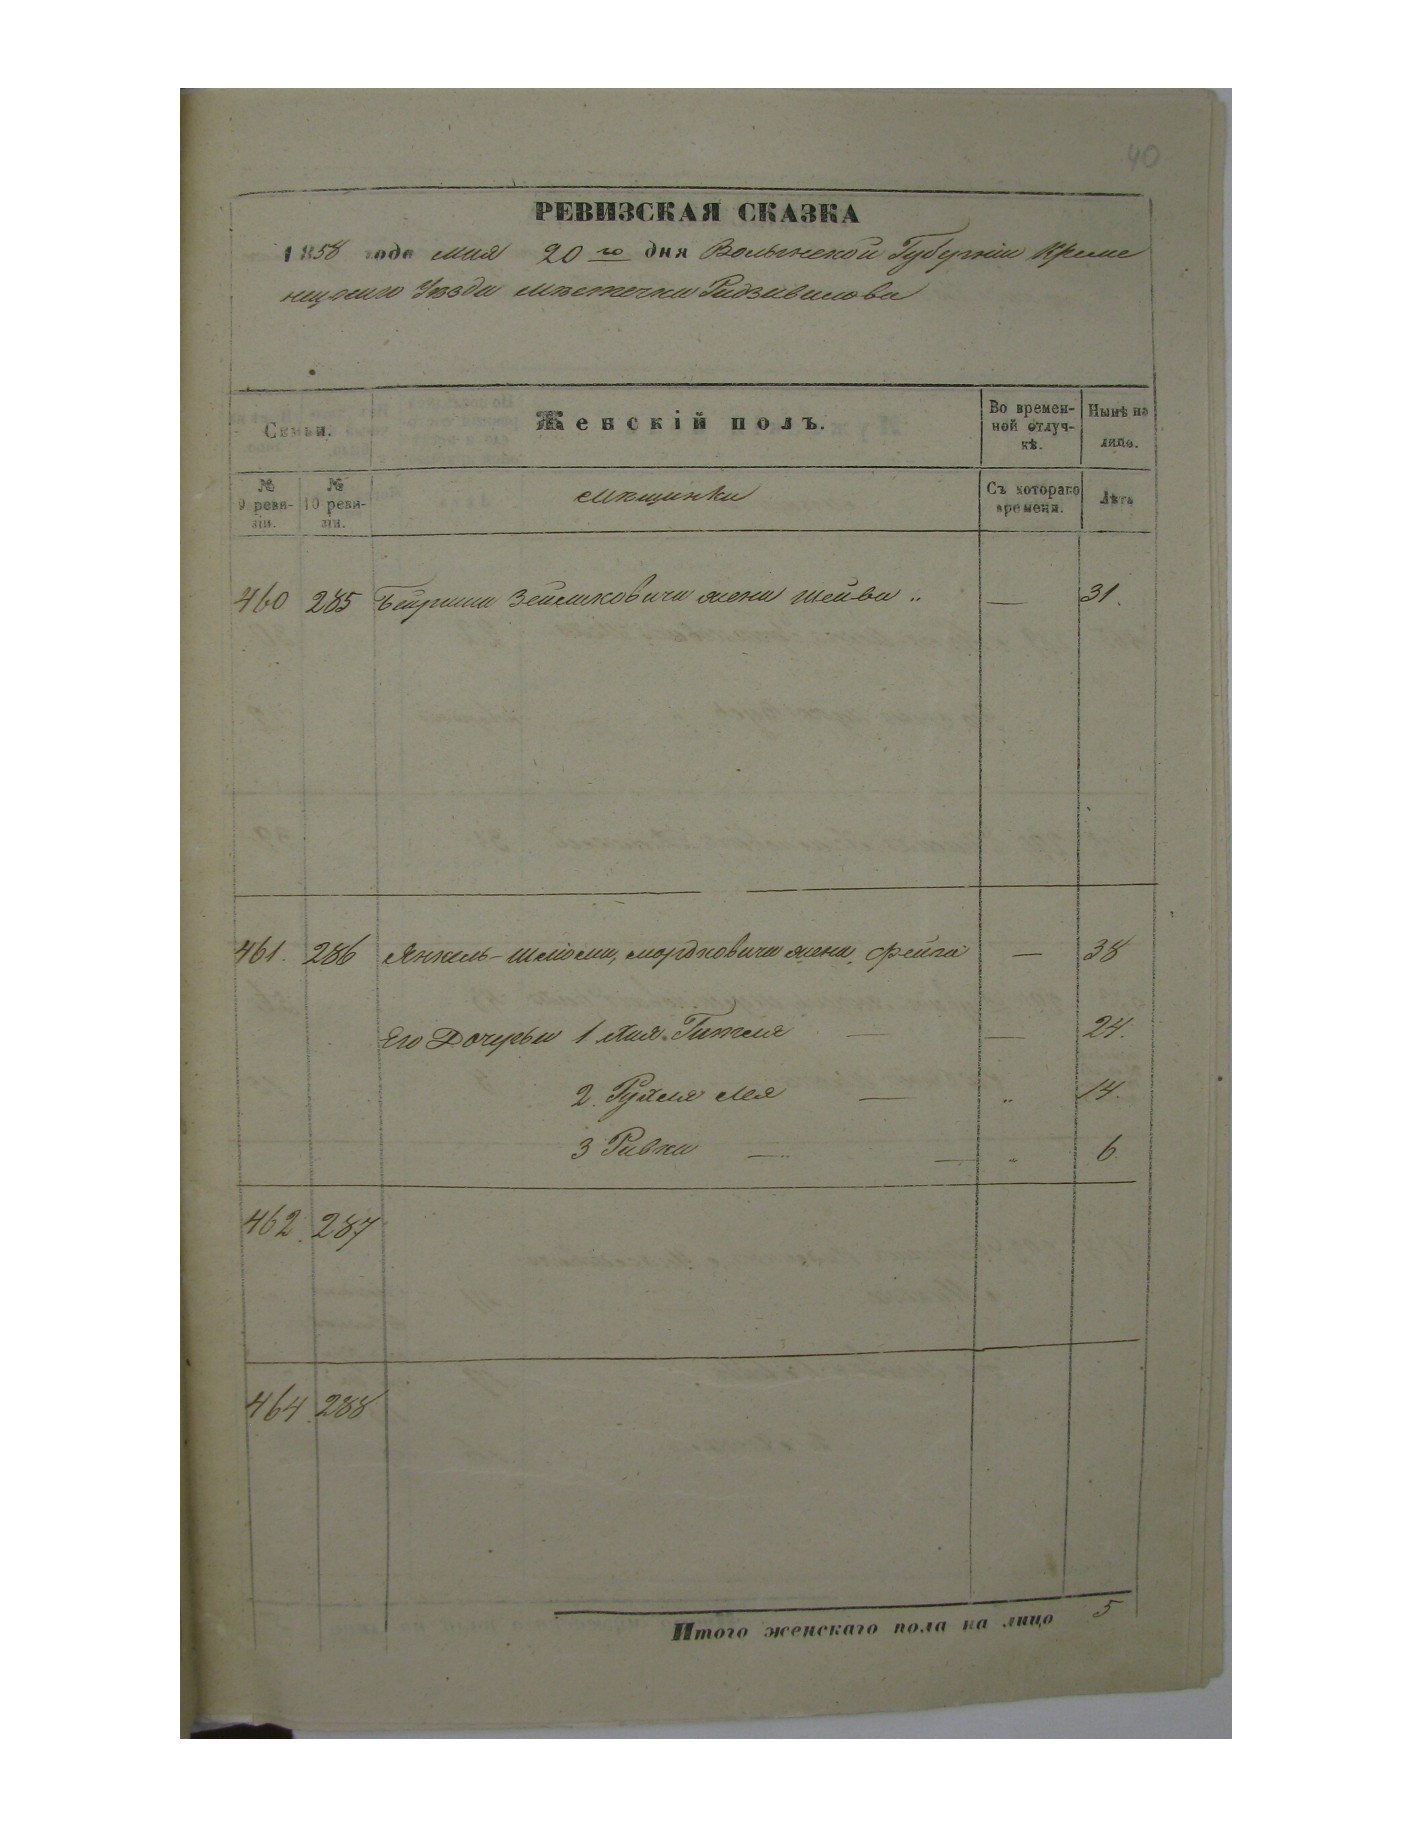 40
РЕВИЗСКАЯ СКАЗКА
1858 года мая 20 го дня Волынской Губерніи Креме
нецкаго Уезда местечка Радзивилова
Семьи.
Женскій полъ.
Во времен-
ной отлуч-
кѣ.
Нынѣ на
лицо.
№
9 реви-
зіи.
№
10 реви-
зіи.
мѣщанки
Съ котораго
времени.
Лѣта
460 285 Зейликовича жена Шейва „ — 31.
461. 286 Янкель-Шліома Мордковича жена Фейга — 38
Его Дочерьи 1 Хая-Гитля — — 24.
2. Рухля Лея — „ 14.
3 Ривка — — „ 6
462. 287
464. 288
Итого женскаго пола на лицо 5